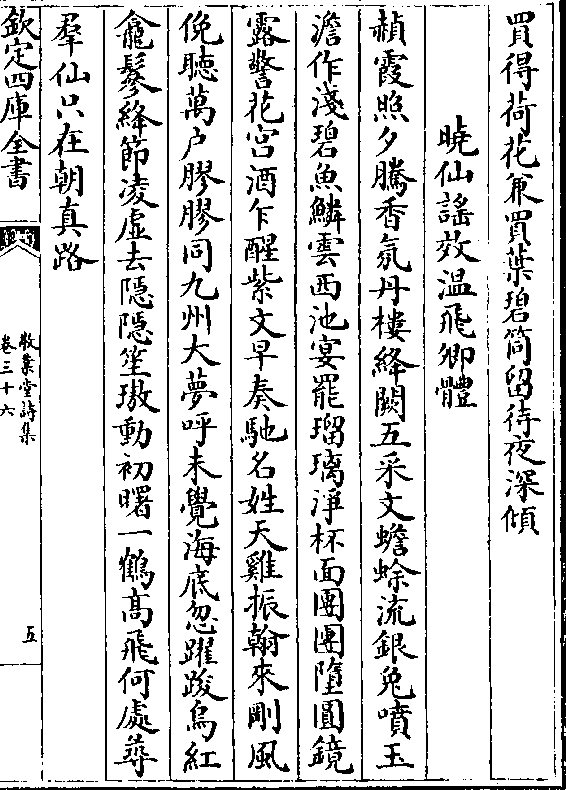 買得荷花兼買葉碧筒留待夜深傾
曉仙謡效温飛卿體
赬霞照夕騰香氛丹樓絳闕五采文蟾蜍流銀兔噴玉
澹作淺碧魚鱗雲西池宴罷瑠璃淨杯面團團墮圓鏡
露警花宫酒乍醒紫文早奏馳名姓天雞振翰來剛風
俛聽萬户膠膠同九州大夢呼未覺海底忽躍踆烏紅
龕鬖絳節凌虚去隠隠笙璈動初曙一鶴髙飛何處尋
羣仙只在朝真路
欽定四庫全書
敬業堂詩集
卷三十六
五